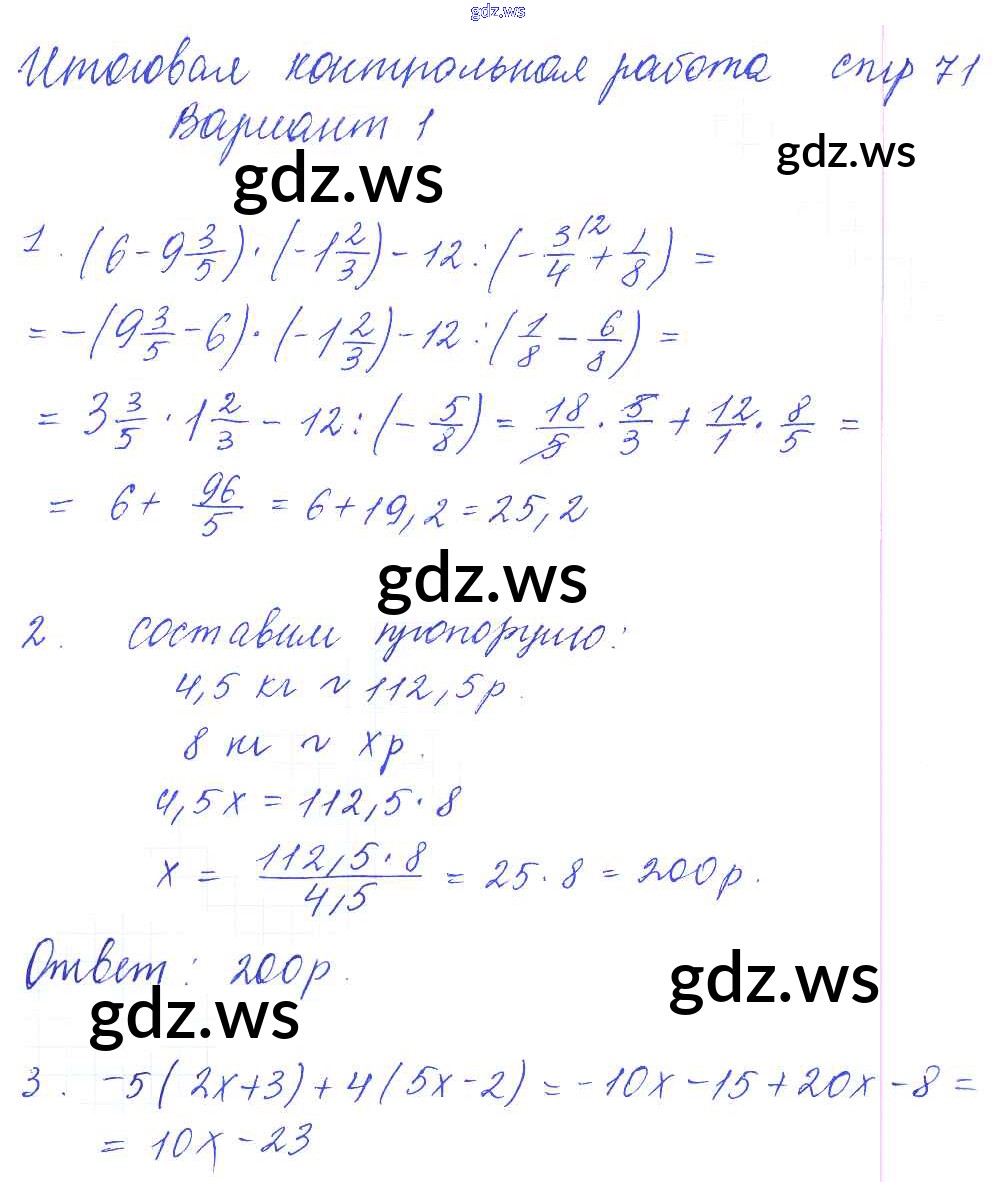 gdz.ws
Итоговая контрольная работа стр 71
Вариант 1
gdz.ws
gdz.ws
1. (6 - 9 3/5) · (-1 2/3) - 12 : (- 3/4 \2 + 1/8) =
= -(9 3/5 - 6) · (-1 2/3) - 12 : (1/8 - 6/8) =
= 3 3/5 · 1 2/3 - 12 : (- 5/8) = 18/5 · 5/3 + 12/1 · 8/5 =
= 6 + 96/5 = 6 + 19,2 = 25,2
gdz.ws
2. составим пропорцию:
4,5 кг ~ 112,5 р.
8 кг ~ х р.
4,5х = 112,5 · 8
х = 112,5 · 8 / 4,5 = 25 · 8 = 200 р.
Ответ: 200 р.
gdz.ws
gdz.ws
3. -5(2х+3) + 4(5х-2) = -10х - 15 + 20х - 8 =
= 10х - 23